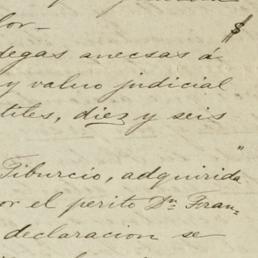 lor— $
degas anecsas á
y valuo judicial
tiles, diez y seis
"
Tiburcio, adquirida
or el perito Dn. Fran=
declaracion se